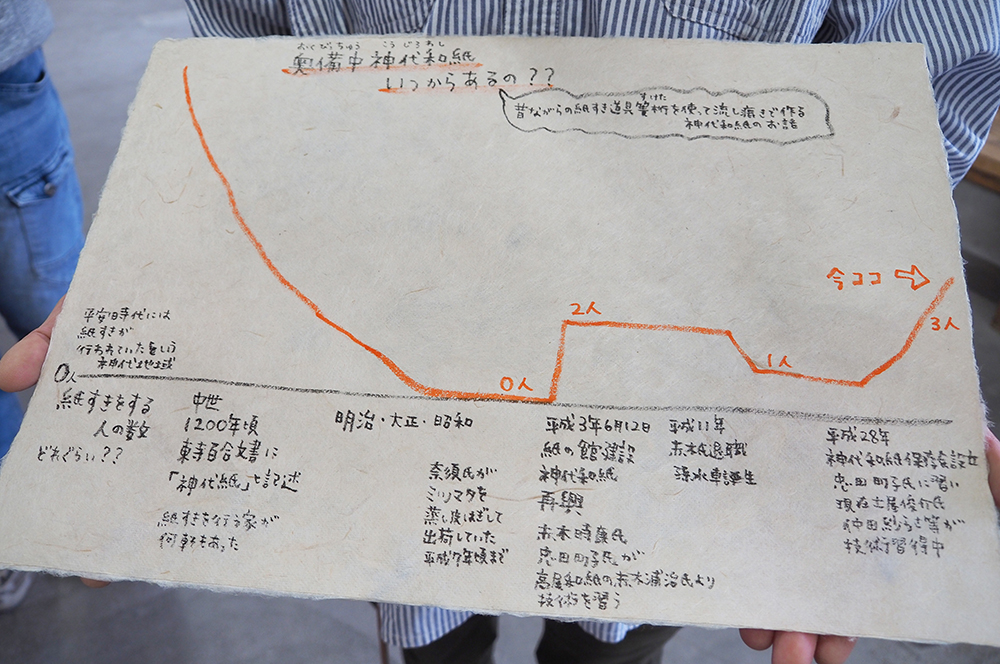 おくびっちゅう こうじろわし
奥備中神代和紙
いつからあるの??
昔ながらの紙すき道具簀桁を使って流し漉きで作る
すけた
神代和紙のお話
今ココ
2人
3人
1人
0人
平安時代には
紙すきが
行われていたという
神代地域
0人
紙すきをする
人の数
どれぐらい??
中世
1200年頃
東寺百合文書に
「神代紙」と記述
紙すきを行う家が
何軒もあった
明治・大正・昭和
奈須氏が
ミツマタを
蒸し皮はぎして
出荷していた
平成7年頃まで
平成3年6月12日
紙の館建設
神代和紙
再興
赤木時康氏
忠田町子氏が
高尾和紙の赤木浦治氏より
技術を習う
平成11年
赤木氏退職
誕生
平成28年
神代和紙保存会設立
忠田町子氏に習い
現在土屋
仲田紗らさ等が
技術習得中